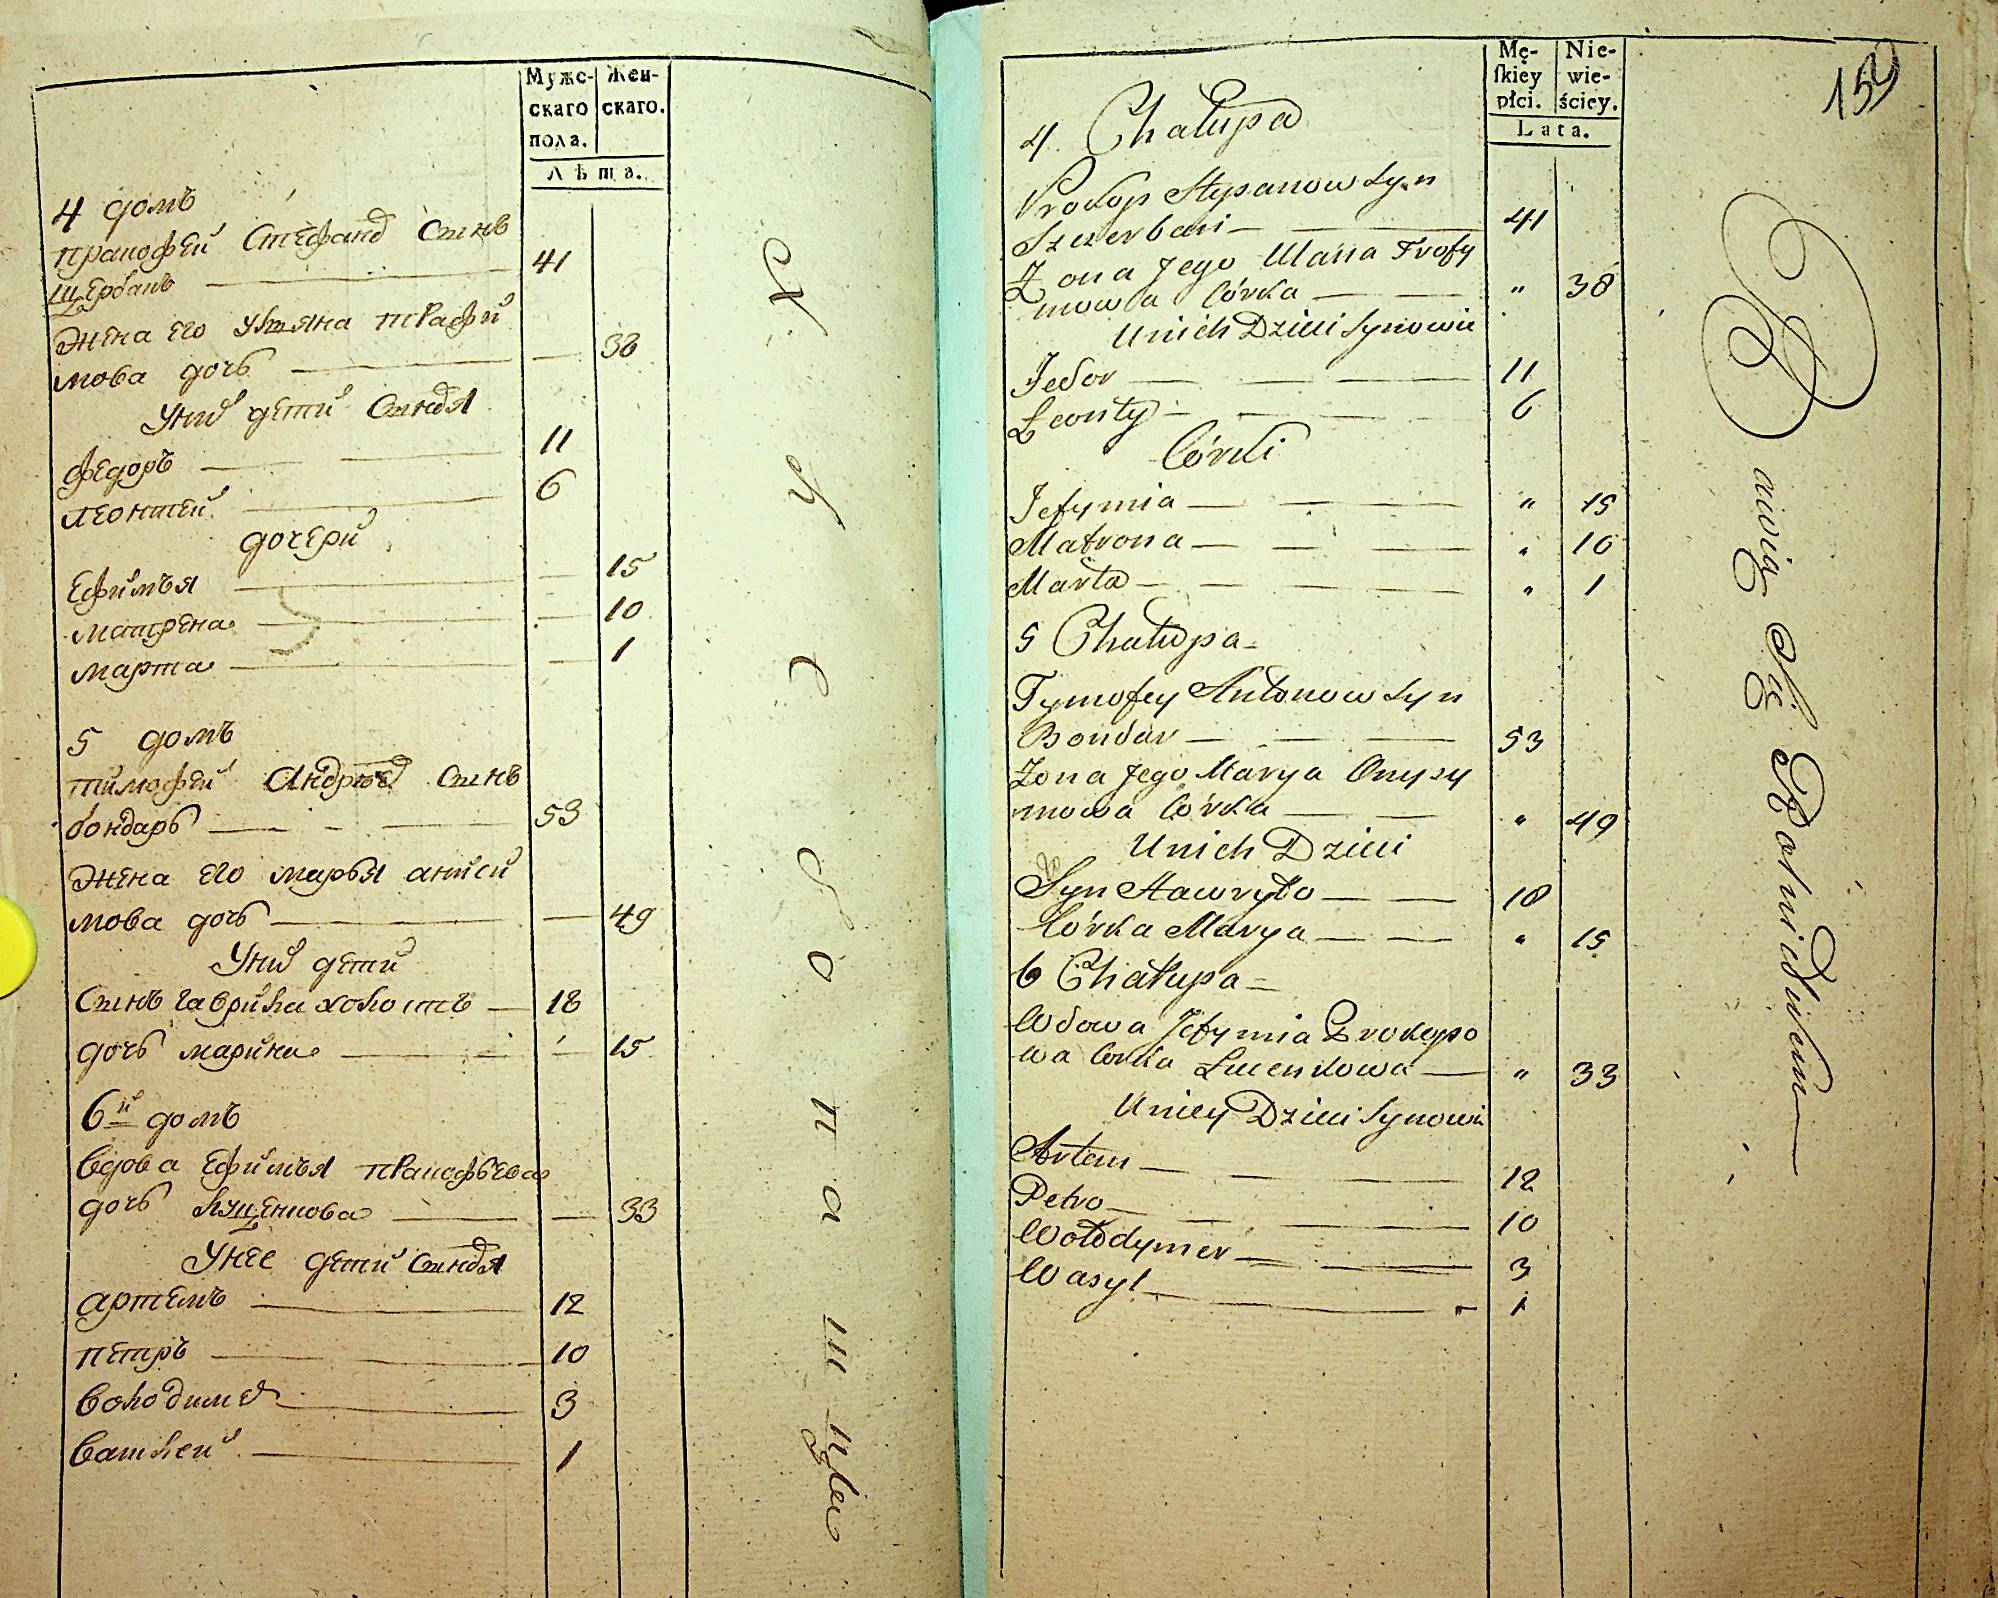 Мужс- Жен-
скаго скаго.
пола.
Лѣта.
4 домъ
пракофей Стефанов Синъ
щербанъ 41
Жена его Уляна трафи
мова дочь 38
Уних дети Синовя
федоръ 11
леонтей 6
дочери
Ефимъя 15
матрена 10
марта 1
5 домъ
тимофей Андреев Синъ
бондарь 53
Жена его маръя аниси
мова дочь 49
Уних дети
Синъ гаврила холостъ 18
дочь марина 15
6й домъ
вдова Ефимъя пракофьева
дочь луценкова 33
Унее дети Синовя
артемъ 12
петръ 10
володимер 3
василей 1
хлебопашцы
Mę- Nie-
ſkiey wie-
płci. ściey.
Lata.
159
4 Chałupa
Prokop Stepanow Syn
Szczerban 41
Żona Jego Ulana Trofy
mowa Córka " 38
Unich Dzieci Synowie
Fedor 11
Leonty 6
Córki
Jefymia " 15
Matrona " 10
Marta " 1
5 Chałupa
Tymofey Antonow Syn
Bondar 53
Żona Jego Marya Onysy
mowa Córka " 49
Unich Dzieci
Syn Hawryło 18
Córka Marya " 15
6 Chałupa
Wdowa Jefymia Prokopo
wa Corka Lucenkowa " 33
Uniey Dzieci Synowie
Artem 12
Petro 10
Wołodymer 3
Wasyl 1
Bawią Się Rolnictwem